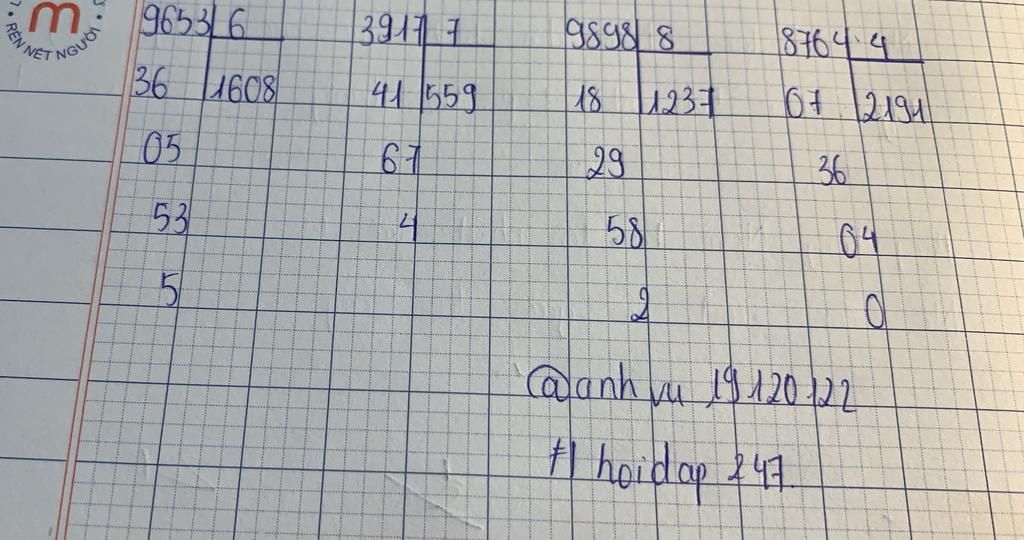 m
RÈN NẾT NGƯỜI
9653 6 3917 7 9898 8 8764 4
36 1608 41 559 18 1237 07 2191
05 67 29 36
53 4 58 04
5 2 0
@anh vu 19120122
#1 hoidap 247